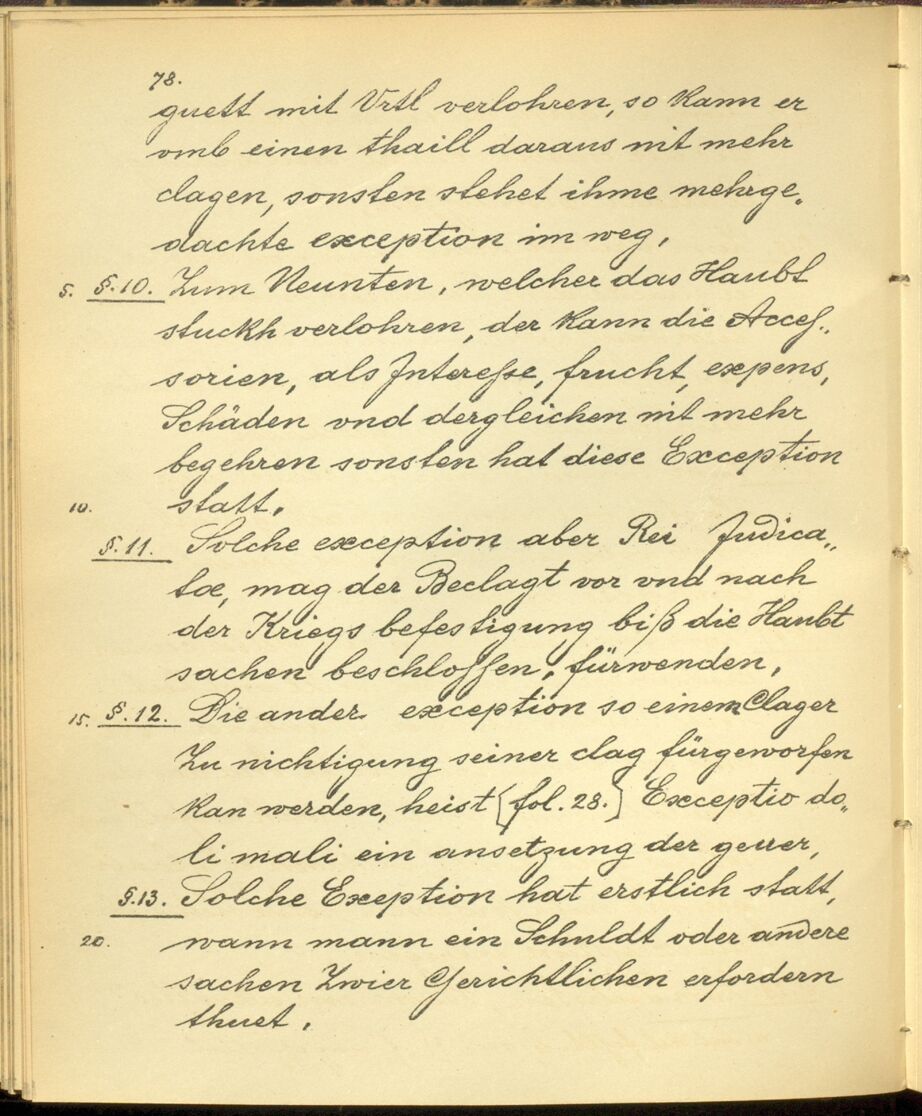 78.
guett mit Vrtl verlohren, so kann er
vmb einen thaill daraus nit mehr
clagen, sonsten stehet ihme mehrge„
dachte exception im weg,
5. §.10. Zum Neunten, welcher das Haubt
stuckh verlohren, der kann die Acceſ„
sorien, als Intereſse, frucht, expens,
Schäden vnd dergleichen nit mehr
begehren sonsten hat diese Exception
10. statt,
§.11. Solche exception aber Rei Judica„
tæ, mag der Beclagt vor vnd nach
der Kriegs befestigung biß die Haubt
sachen beschloſſen, fürwenden,
15. §.12. Die ander exception so einem Clager
Zu nichtigung seiner clag fürgeworfen
kan werden, heist [fol. 28.] Exceptio do„
li mali ein ansetzung der
§.13. Solche Exception hat erstlich statt,
20. wann mann ein Schuldt oder andere
sachen Zwier Gerichtlichen erfordern
thuet,